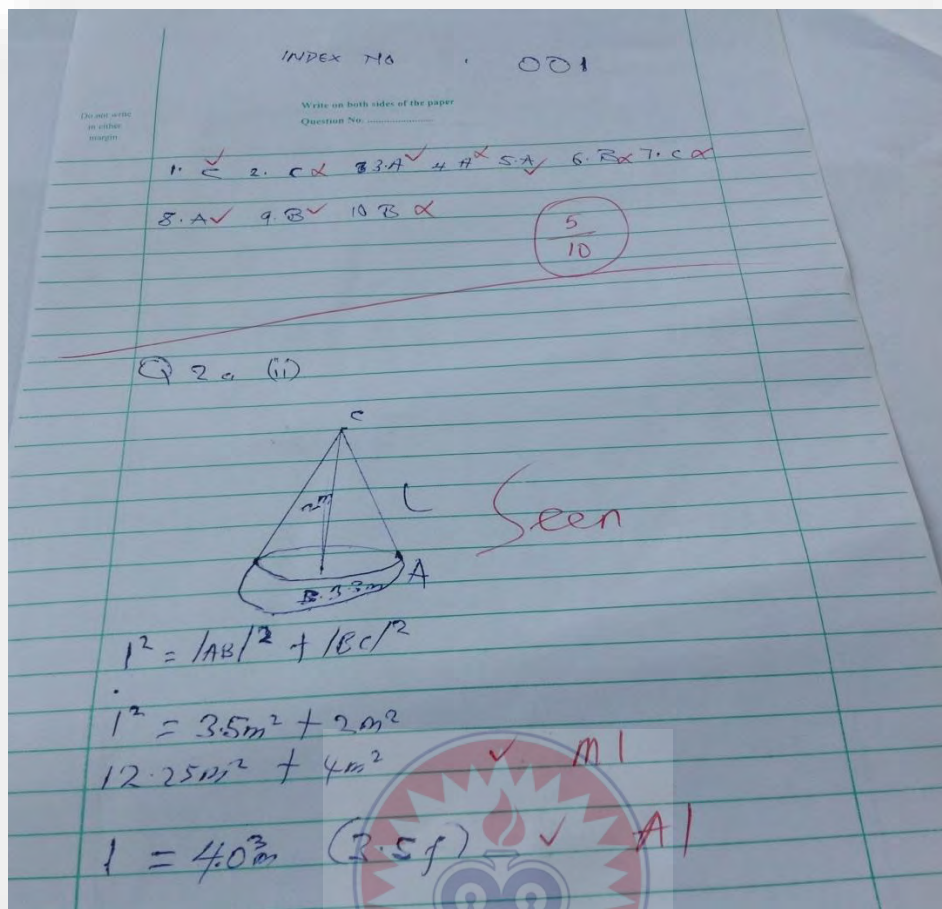 INDEX NO . 001
Do not write
in either
margin
Write on both sides of the paper
Question No. ........................
1. C ✓ 2. C ✗ 3. A ✓ 4 A ✗ 5. A ✓ 6. B ✗ 7. C ✗
8. A ✓ 9. B ✓ 10 B ✗
5
10
Q 2a (ii)
C
2m
L
Seen
A
l² = |AB|² + |BC|²
l² = 3.5m² + 2m²
12.25m² + 4m² ✓ M1
l = 4.03m (3.s.f) ✓ A1